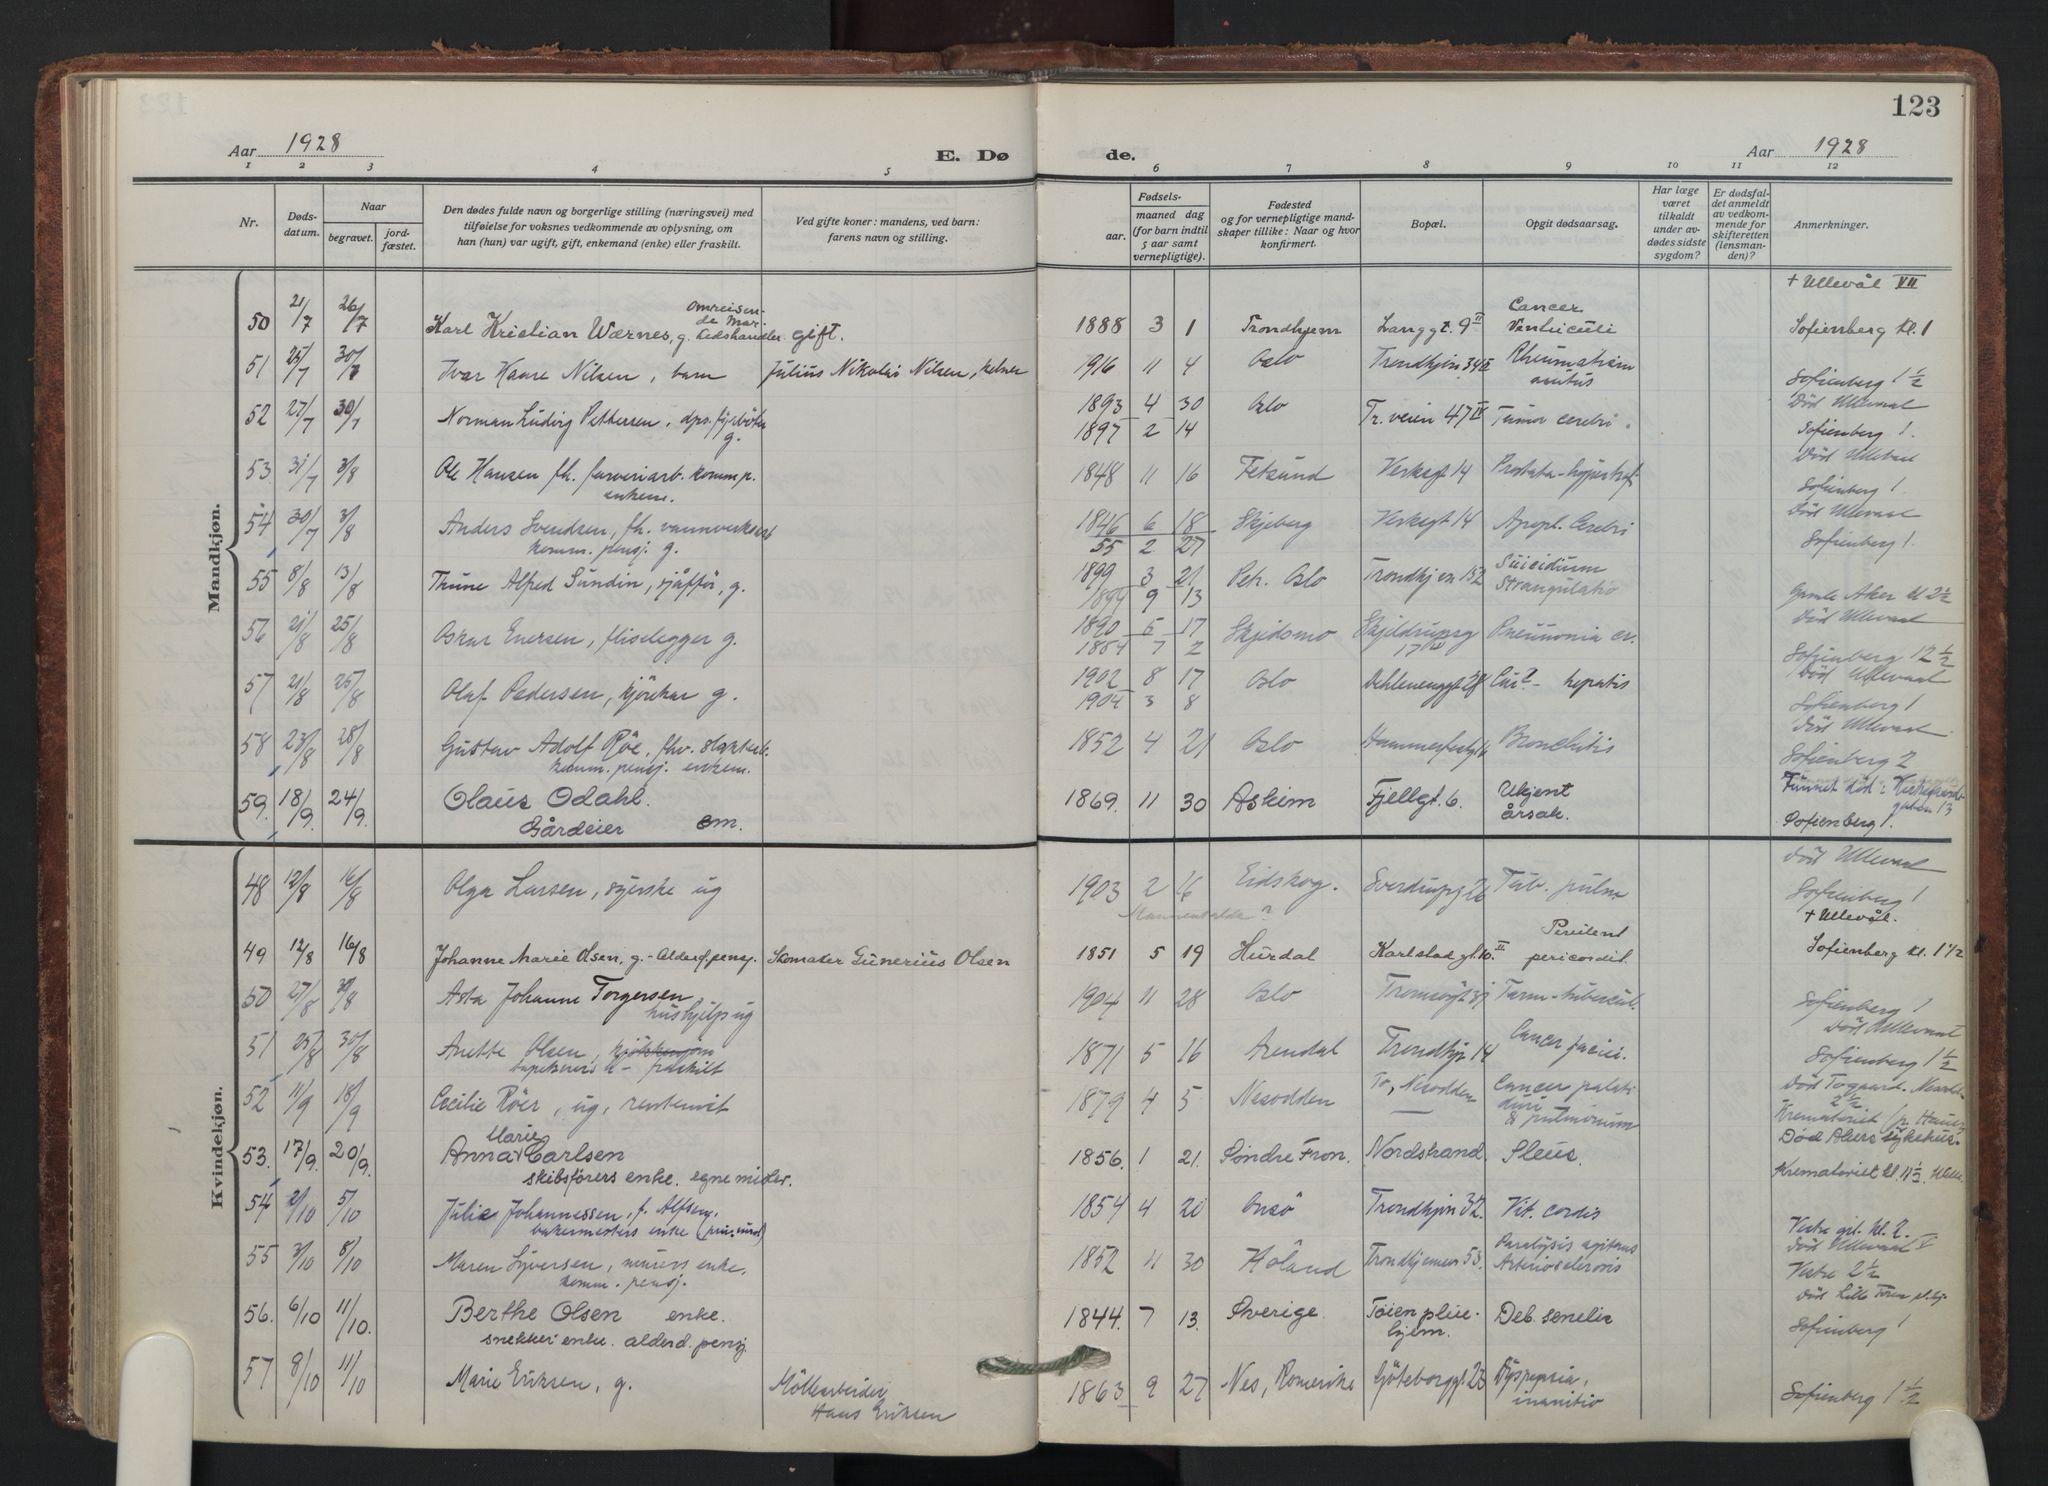 123
Aar 1928
E. Døde.
Aar 1928
1 2 3 4 5 6 7 8 9 10 11 12
Nr.
Døds-datum.
Naar
begravet.
jord-fæstet.
Den dødes fulde navn og borgerlige stilling (næringsvei) med
tilføielse for voksnes vedkommende av oplysning, om
han (hun) var ugift, gift, enkemand (enke) eller fraskilt.
Ved gifte koner: mandens, ved barn:
farens navn og stilling.
Fødsels-
aar.
maaned dag
(for barn indtil
5 aar samt
vernepligtige).
Fødested
og for vernepligtige mand-
skaper tillike: Naar og hvor
konfirmert.
Bopæl.
Opgit dødsaarsag.
Har læge
været
tilkaldt
under av-
dødes sidste
sygdom?
Er dødsfal-
det anmeldt
av vedkom-
mende for
skifteretten
(lensman-
den)?
Anmerkninger.
Mandkjøn.
50 21/7 26/7 Karl Kristian Wærnes, g. omreisende Mar- kedshandler. gift. 1888 3 1 Trondhjem Langgt. 9 II Cancer Ventriculi + Ullevål VII Sofienberg kl. 1
51 25/7 30/7 Ivar Hause Nilsen, barn Julius Nikolai Nilsen, kelner 1916 11 4 Oslo Trondhjvn 34 II Rheumatism acutus Sofienberg 1 1/2
52 27/7 30/7 Norman Ludvig Pettersen, fyrbøter g. 1893 4 30 Oslo Tr. veien 47 IV Tumor cerebri. Död Ullevaal
1897 2 14 Sofienberg 1.
53 31/7 3/8 Ole Hansen fh. farveriarb. komm p. enkem. 1848 11 16 Fetsund Verksgt 14 Prostata-hypertrofi Död Ullevaal Sofienberg 1.
54 30/7 3/8 Anders Svendsen, fh. vannverksarb komm. pensj. g. 1846 6 18 Skjeberg Verksgt 14 Apopl. Cerebri Död Ullevaal
55 2 27 Sofienberg 1.
55 8/8 13/8 Thune Alfred Sundin, sjåffør, g. 1899 3 21 Petr. Oslo Trondhjvn 152 Suicidium Strangulatio
1899 9 13 Gamle Aker kl 2 1/2
56 21/8 25/8 Oskar Enersen, fliselegger g. 1890 5 17 Skjedsmo Skjeldrupsg 17 Pneumonia cr. Död Ullevaal
7 2 Sofienberg 12 1/2
57 21/8 25/8 Olaf Pedersen, kjörekar g. 1902 8 17 Oslo hepatis Död Ullevaal
1904 3 8 Sofienberg 1
58 23/8 28/8 Gustav Adolf Röe, fhv. slakterb. komm. pensj. enkem. 1852 4 21 Oslo Hammerfestgt Bronchitis Död Ullevaal Sofienberg 2
59. 18/9. 24/9. Olaus Odahl. Gårdeier em. 1869. 11 30 Askim Fjellgt. 6. Ukjent årsak. Funnet död: Kirkegaards- gaten 13 Sofienberg 1.
Kvindekjøn.
48 12/8 16/8 Olga Larsen, syerske ug 1903 2 16 Eidskog. Sverdrupsg 26 Tub. pulm Död Ullevaal Sofienberg 1
49 12/8 16/8 Johanne Marie Olsen, g. - Alderd. pensj. Skomaker Gunerius Olsen 1851 5 19 Hurdal Karlstadgt. 10. II pericardit. + Ullevål. Sofienberg kl. 1 1/2
50 27/8 30/8 Asta Johanne Torgersen hushjelp ug 1904 11 28 Oslo Tromsøgt 37 Tarm-tubercul. Sofienberg 1
51 25/8 30/8 Anette Olsen, fraskilt 1871 5 16 Arendal Trondhjv 14 Cancer faciei. Död Ullevaal Sofienberg 1 1/2
52 11/9 18/9 Cecilie Röer, ug, rentenist 1879 4 5 Nesodden To, Nesodden Cancer palati duri & pulmonum 2 1/2 Krematoriet
53. 17/9. 20/9. Anna Marie Carlsen skibsförers enke. egne midler. 1856. 1 21. Søndre Fron. Nordstrand. Ileus. Död Akers sykehus. Krematoriet kl 11 1/2
54 2/10 5/10 Julie Johannessen, f. Alfsen, bakermesters enke 1854 4 20 Onsö Trondhjvn 32. Vit. cordis Vestre grl. kl. 2.
55 3/10 8/10 Maren Syversen, murers enke, komm. pensj. 1852 11 30 Höland Trondhjemsv 53. Paralysis agitans Arteriosclerosis Död Ullevaal V Vestre 2 1/2
56. 6/10 11/10. Berthe Olsen enke. snekker enke. alderd. pensj. 1844. 7 13. Sverige. Töien pleie- hjem. Deb. senelis Död Lille Tøien Sofienberg 1
57 8/10 11/10 Marie Eriksen, g. Möllearbeider Hans Eriksen 1863 9 27 Nes, Romerike Göteborggt 23 Dyspepsia, inanitio Sofienberg 1 1/2